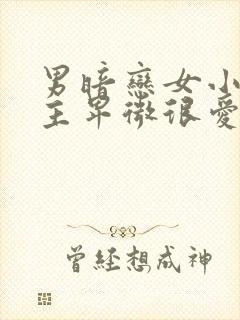 男暗戀女小
主卑微很愛
曾經想成神